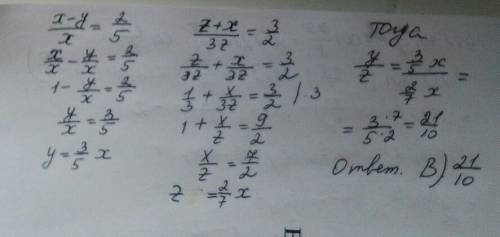 (x-y)/x = 2/5
x/x - y/x = 2/5
1 - y/x = 2/5
y/x = 3/5
y = 3/5 x
(z+x)/3z = 3/2
z/3z + x/3z = 3/2
1/3 + x/3z = 3/2 | · 3
1 + x/z = 9/2
x/z = 7/2
z = 2/7 x
Тогда
y/z = (3/5 x)/(2/7 x) =
= (3·7)/(5·2) = 21/10
Ответ. В) 21/10